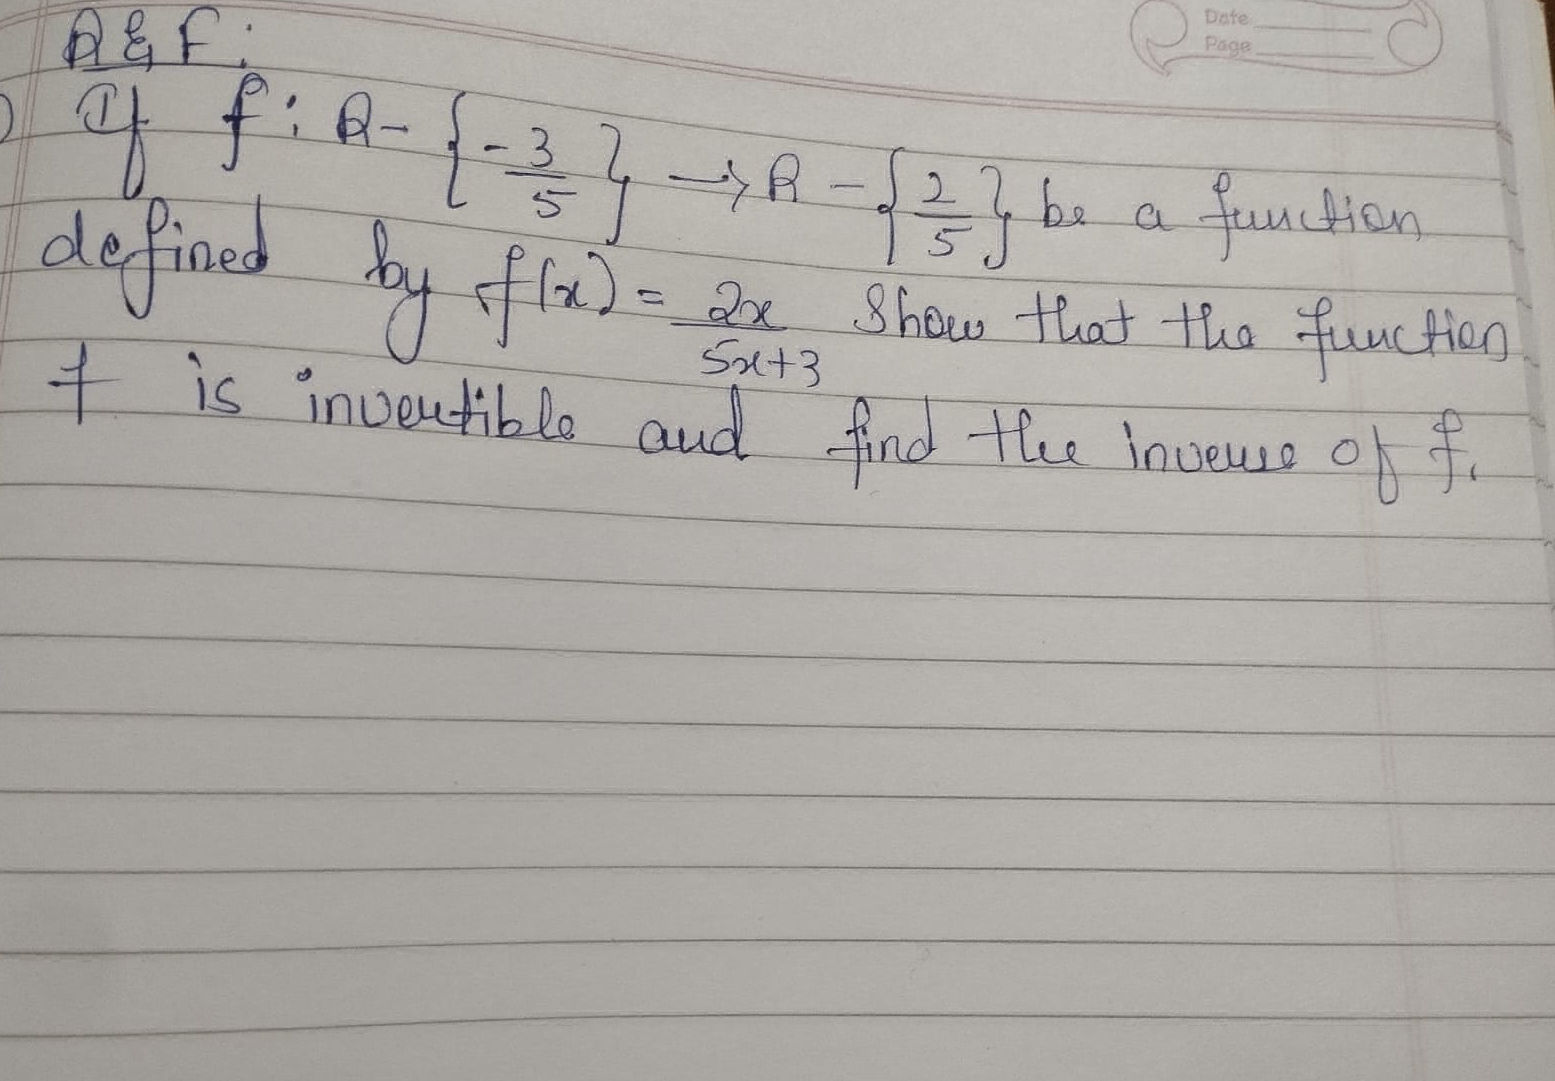 Date
Page
R & F:
If f: R - {-3/5} → R - {2/5} be a function
defined by f(x) = 2x/5x+3 Show that the function
f is invertible and find the inverse of f.